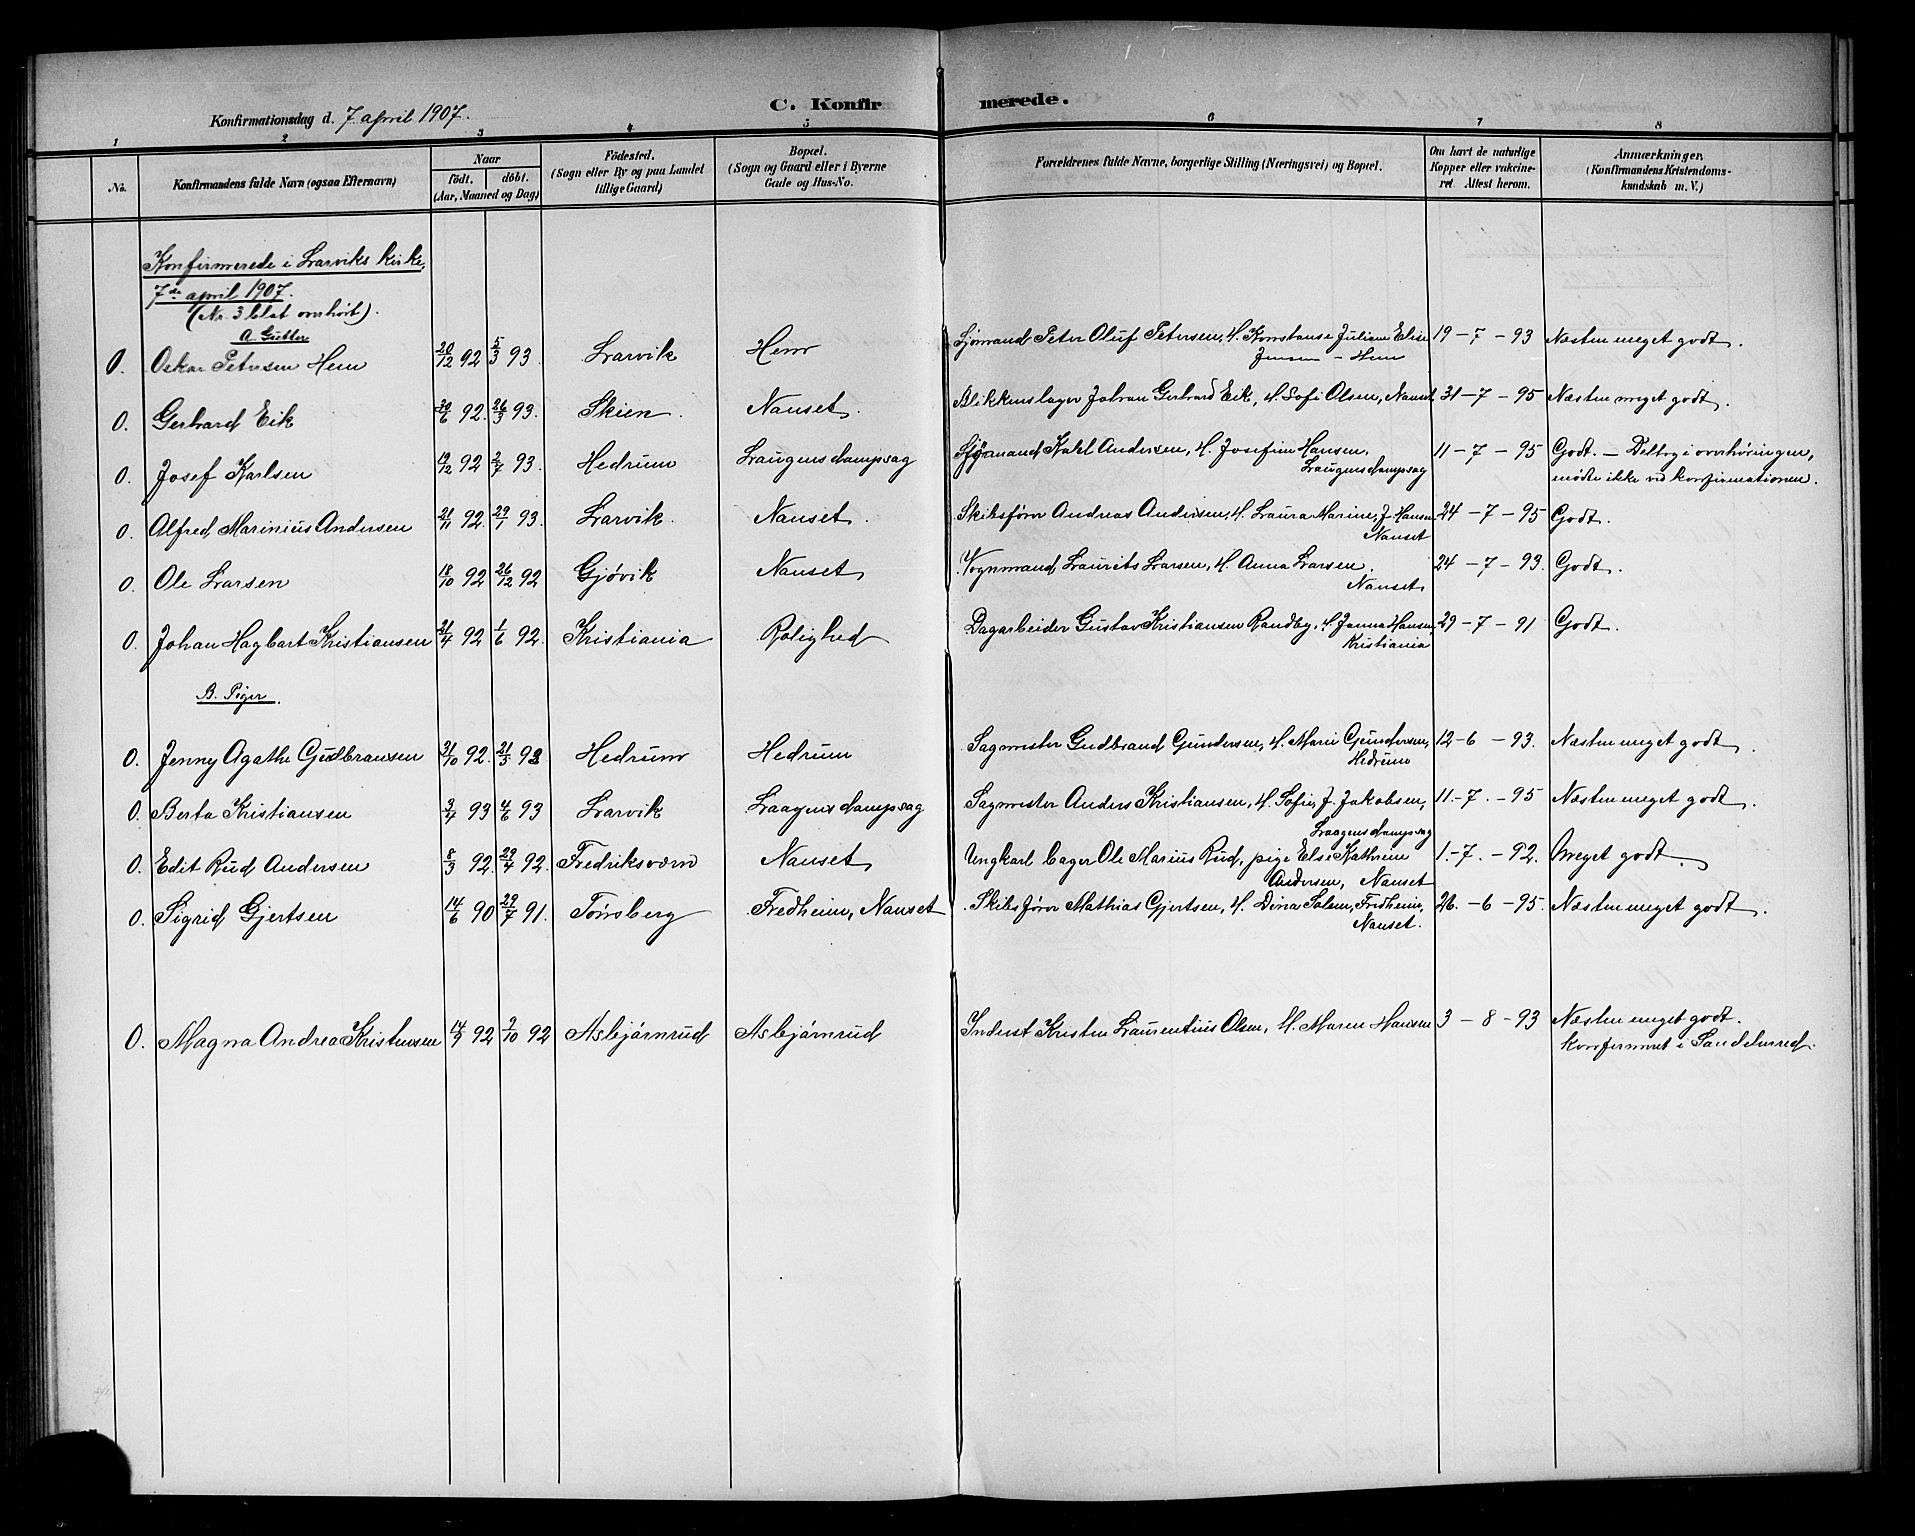 Konfirmationsdag d. 7 april 1907.
C. Konfirmerede.
1 2 3 4 5 6 7 8
No.
Konfirmandens fulde Navn (ogsaa Efternavn)
Naar
födt. döbt.
(Aar, Maaned og Dag)
Födested.
(Sogn eller By og paa Landet
tillige Gaard)
Bopæl.
(Sogn og Gaard eller i Byerne
Gade og Hus-No.
Forældrenes fulde Navne, borgerlige Stilling (Næringsvei) og Bopæl.
Om havt de naturlige
Kopper eller vakcine-
ret. Attest herom.
Anmærkninger,
(Konfirmandens Kristendoms-
kundskab m. V.)
Konfirmerede i Larviks kirke,
7de april 1907.
(Nr. 3 blot overhørt).
A. Gutter
0. Oskar Petersen Hem 20/12 92 5/3 93. Larvik Hem Sjømand Peter Oluf Petersen, H. Konstanse Juliane Elise 19-7-93 Næsten meget godt.
Jensen - Hem
0. Gerhard Eik 30/6 92. 26/3 93. Skien. Nanset. Blikkenslager Johan Gerhard Eik, H. Sofi Olsen, Nanset 31-7-95 Næsten meget godt.
0. Josef Karlsen 19/12 92 2/7 93. Hedrum Laugens dampsag Sjømand Karl Andersen, H. Josefine Hansen, 11-7-95 Godt. - Deltog i overhøringen,
Laugens dampsag mødte ikke ved konfirmationen.
0. Alfred Marinius Andersen 21/11 92. 29/1 93. Larvik. Nanset. Skibsfører Andreas Andersen, H. Laura Marine, J. Hansen 24-7-95 Godt.
Nanset
0. Ole Larsen 18/10 92 26/12 92 Gjøvik Nanset Vognmand Laurits Larsen, H. Anna Larsen. 24-7-93. Godt.
Nanset
0. Johan Hagbart Kristiansen 21/4 92 1/6 92. Kristiania Rolighed Dagarbeider Gustav Kristiansen Randby, H. Janna Hansen, 29-7-91 Godt.
Kristiania
B. Piger.
0. Jenny Agathe Gudbransen 31/10 92. 21/5 93 Hedrum Hedrum Sagmester Gudbrand Gundersen, H. Marie Gundersen, 12-6-93. Næsten meget godt.
Hedrum
0. Berta Kristiansen 3/4 93 4/6 93 Larvik Laagens dampsag Sagmester Anders Kristiansen, H. Sofie, J. Jakobsen, 11.-7.-95 Næsten meget godt.
Laagens dampsag
0. Edit Rud Andersen 8/3 92. 29/4 92. Fredriksværn Nanset Ungkarl bager Ole Marius Rud, pige Else Kathrine 1.-7.-92. Meget godt.
Andersen, Nanset
0. Sigrid Gjertsen 14/6 90 29/7 91. Tønsberg Fredheim, Nanset Skibsfører Mathias Gjertsen, H. Dina Salem, Fredheim, 26.-6-95. Næsten meget godt.
Nanset.
0. Magna Andrea Kristensen 14/9 92 2/10 92 Asbjørnrud Asbjørnrud Inderst Kristen Laurentius Olsen, H. Maren Hansen 3-8-93 Næsten meget godt.
konfirmeret i Sandeherred.